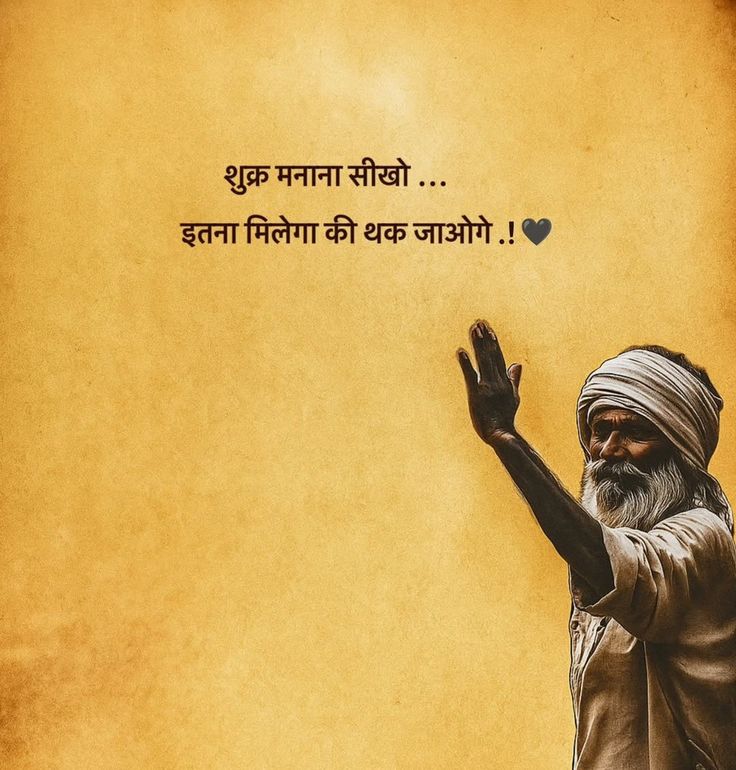 शुक्र मनाना सीखो ...
इतना मिलेगा की थक जाओगे .!🖤